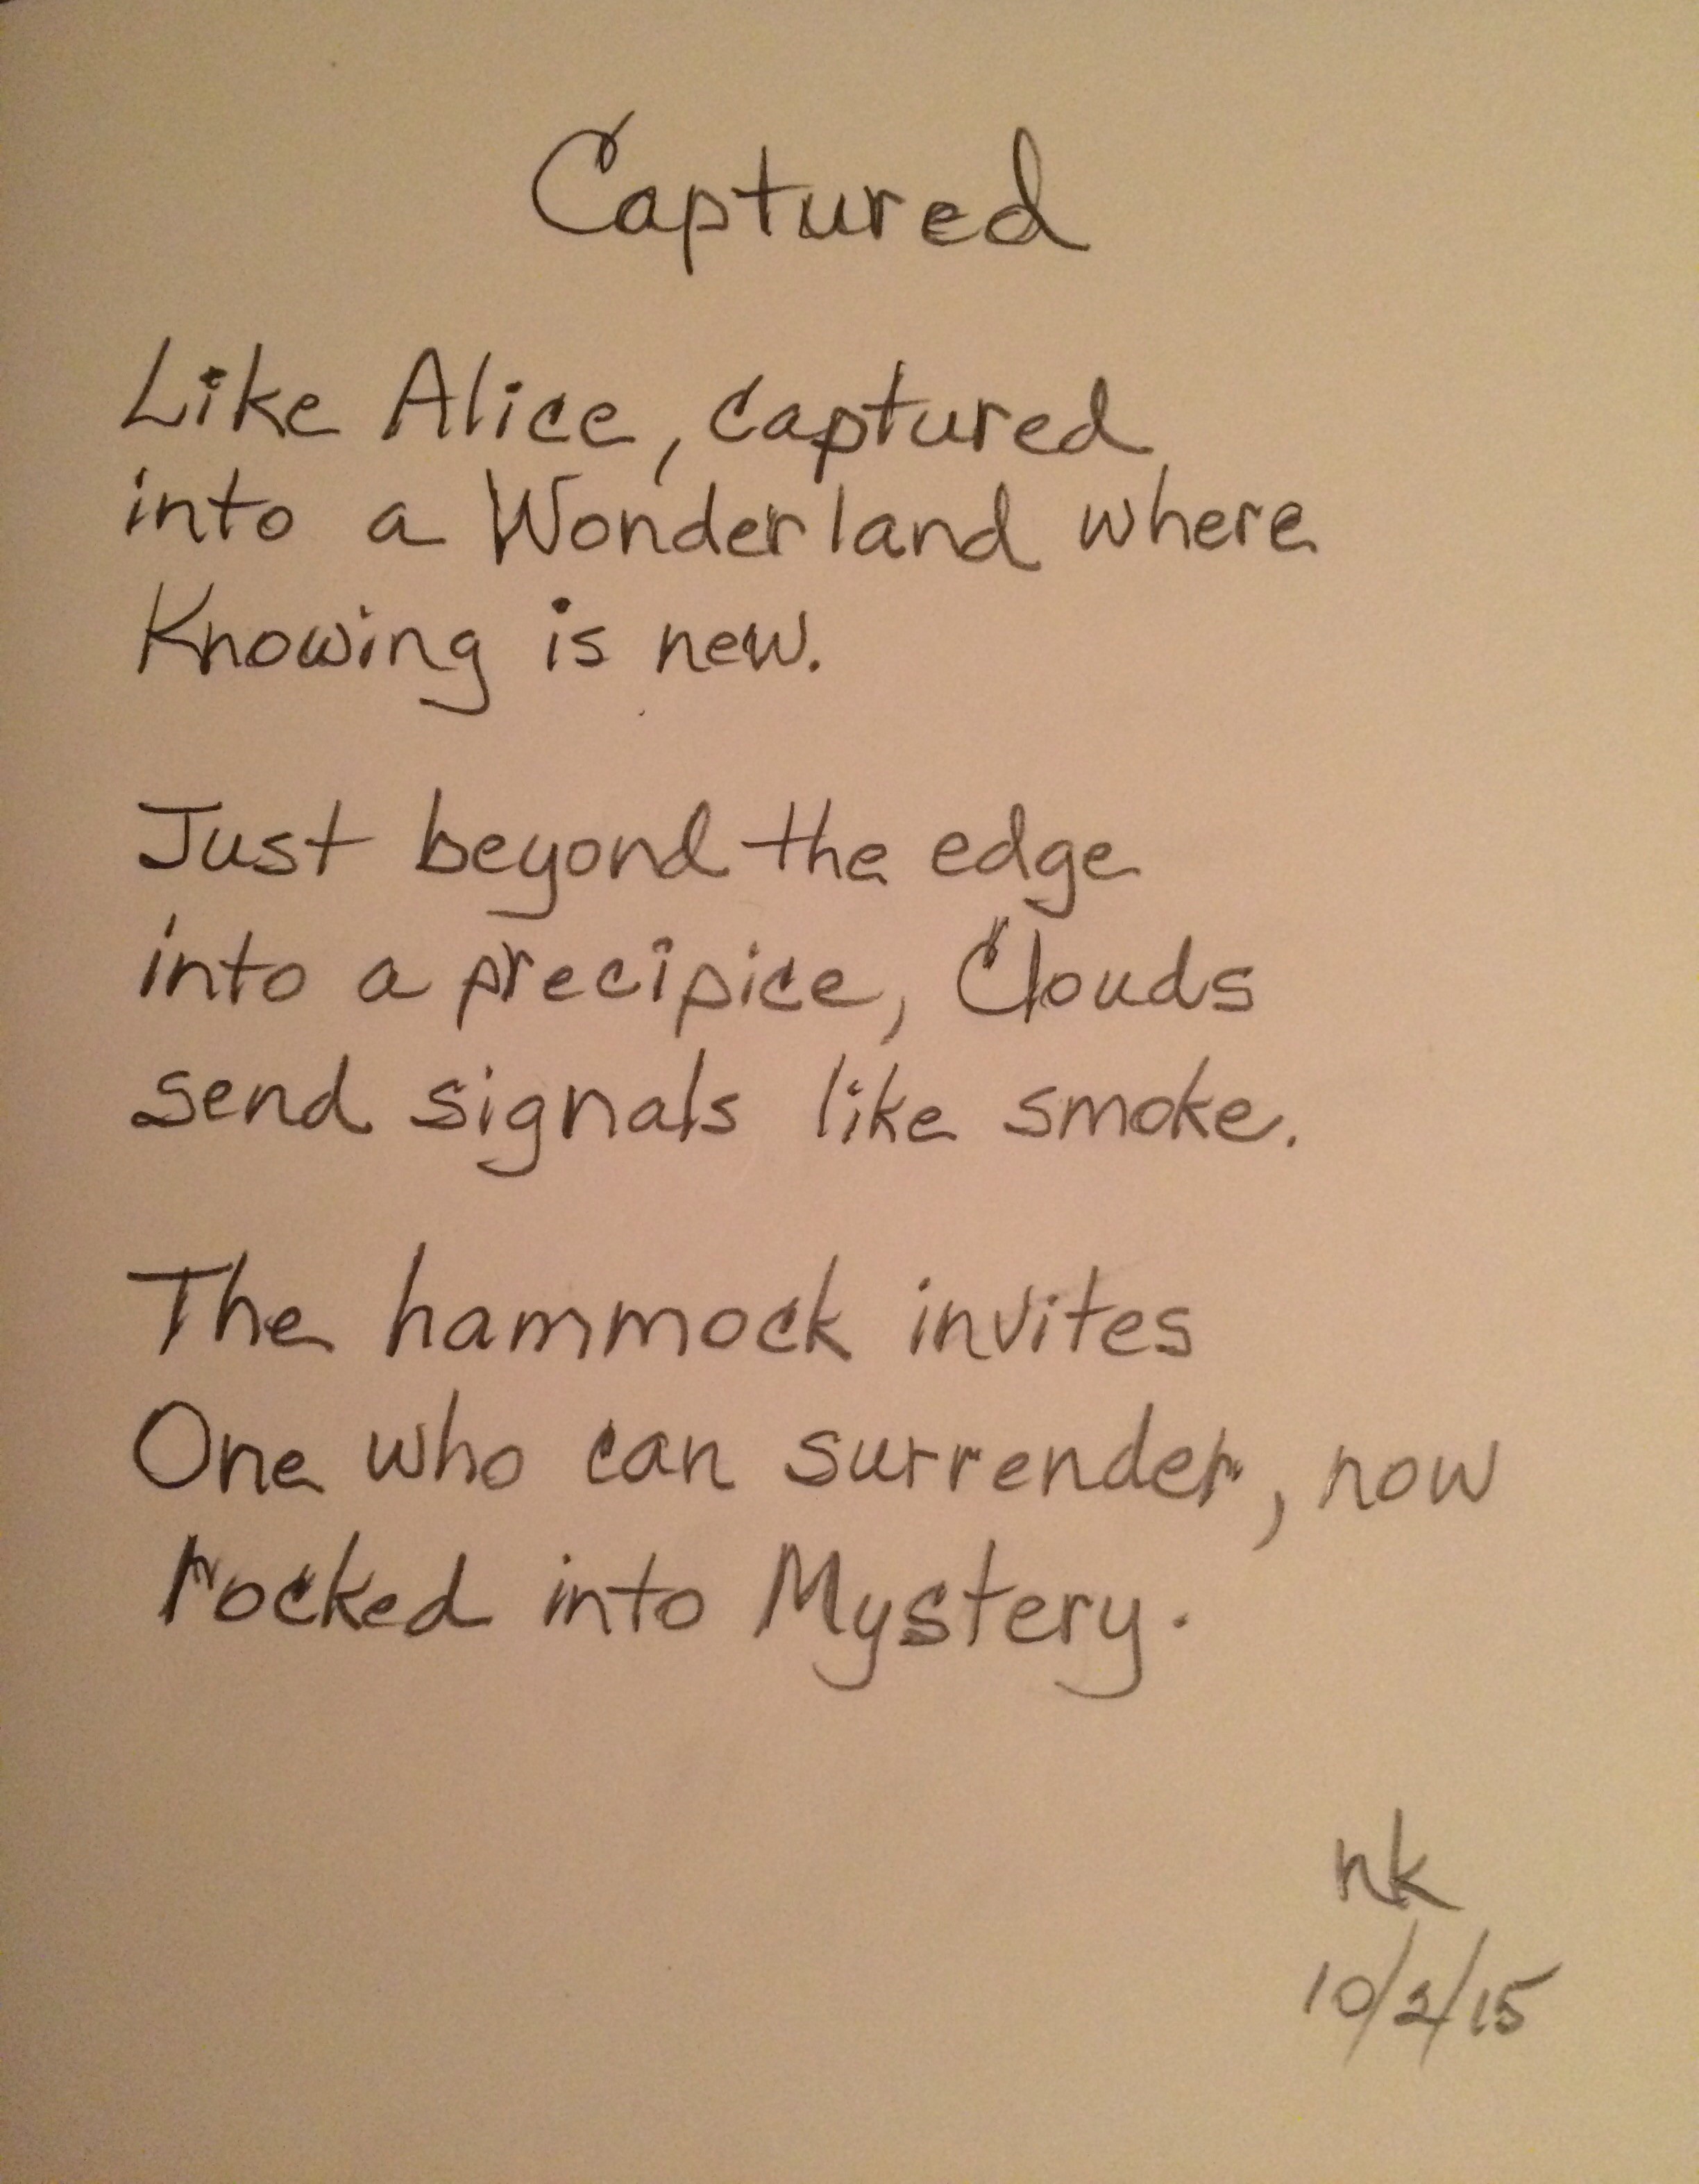 Captured
Like Alice, captured
into a Wonderland where
Knowing is new.
Just beyond the edge
into a precipice, Clouds
send signals like smoke.
The hammock invites
One who can surrender, now
rocked into Mystery.
nk
10/2/15